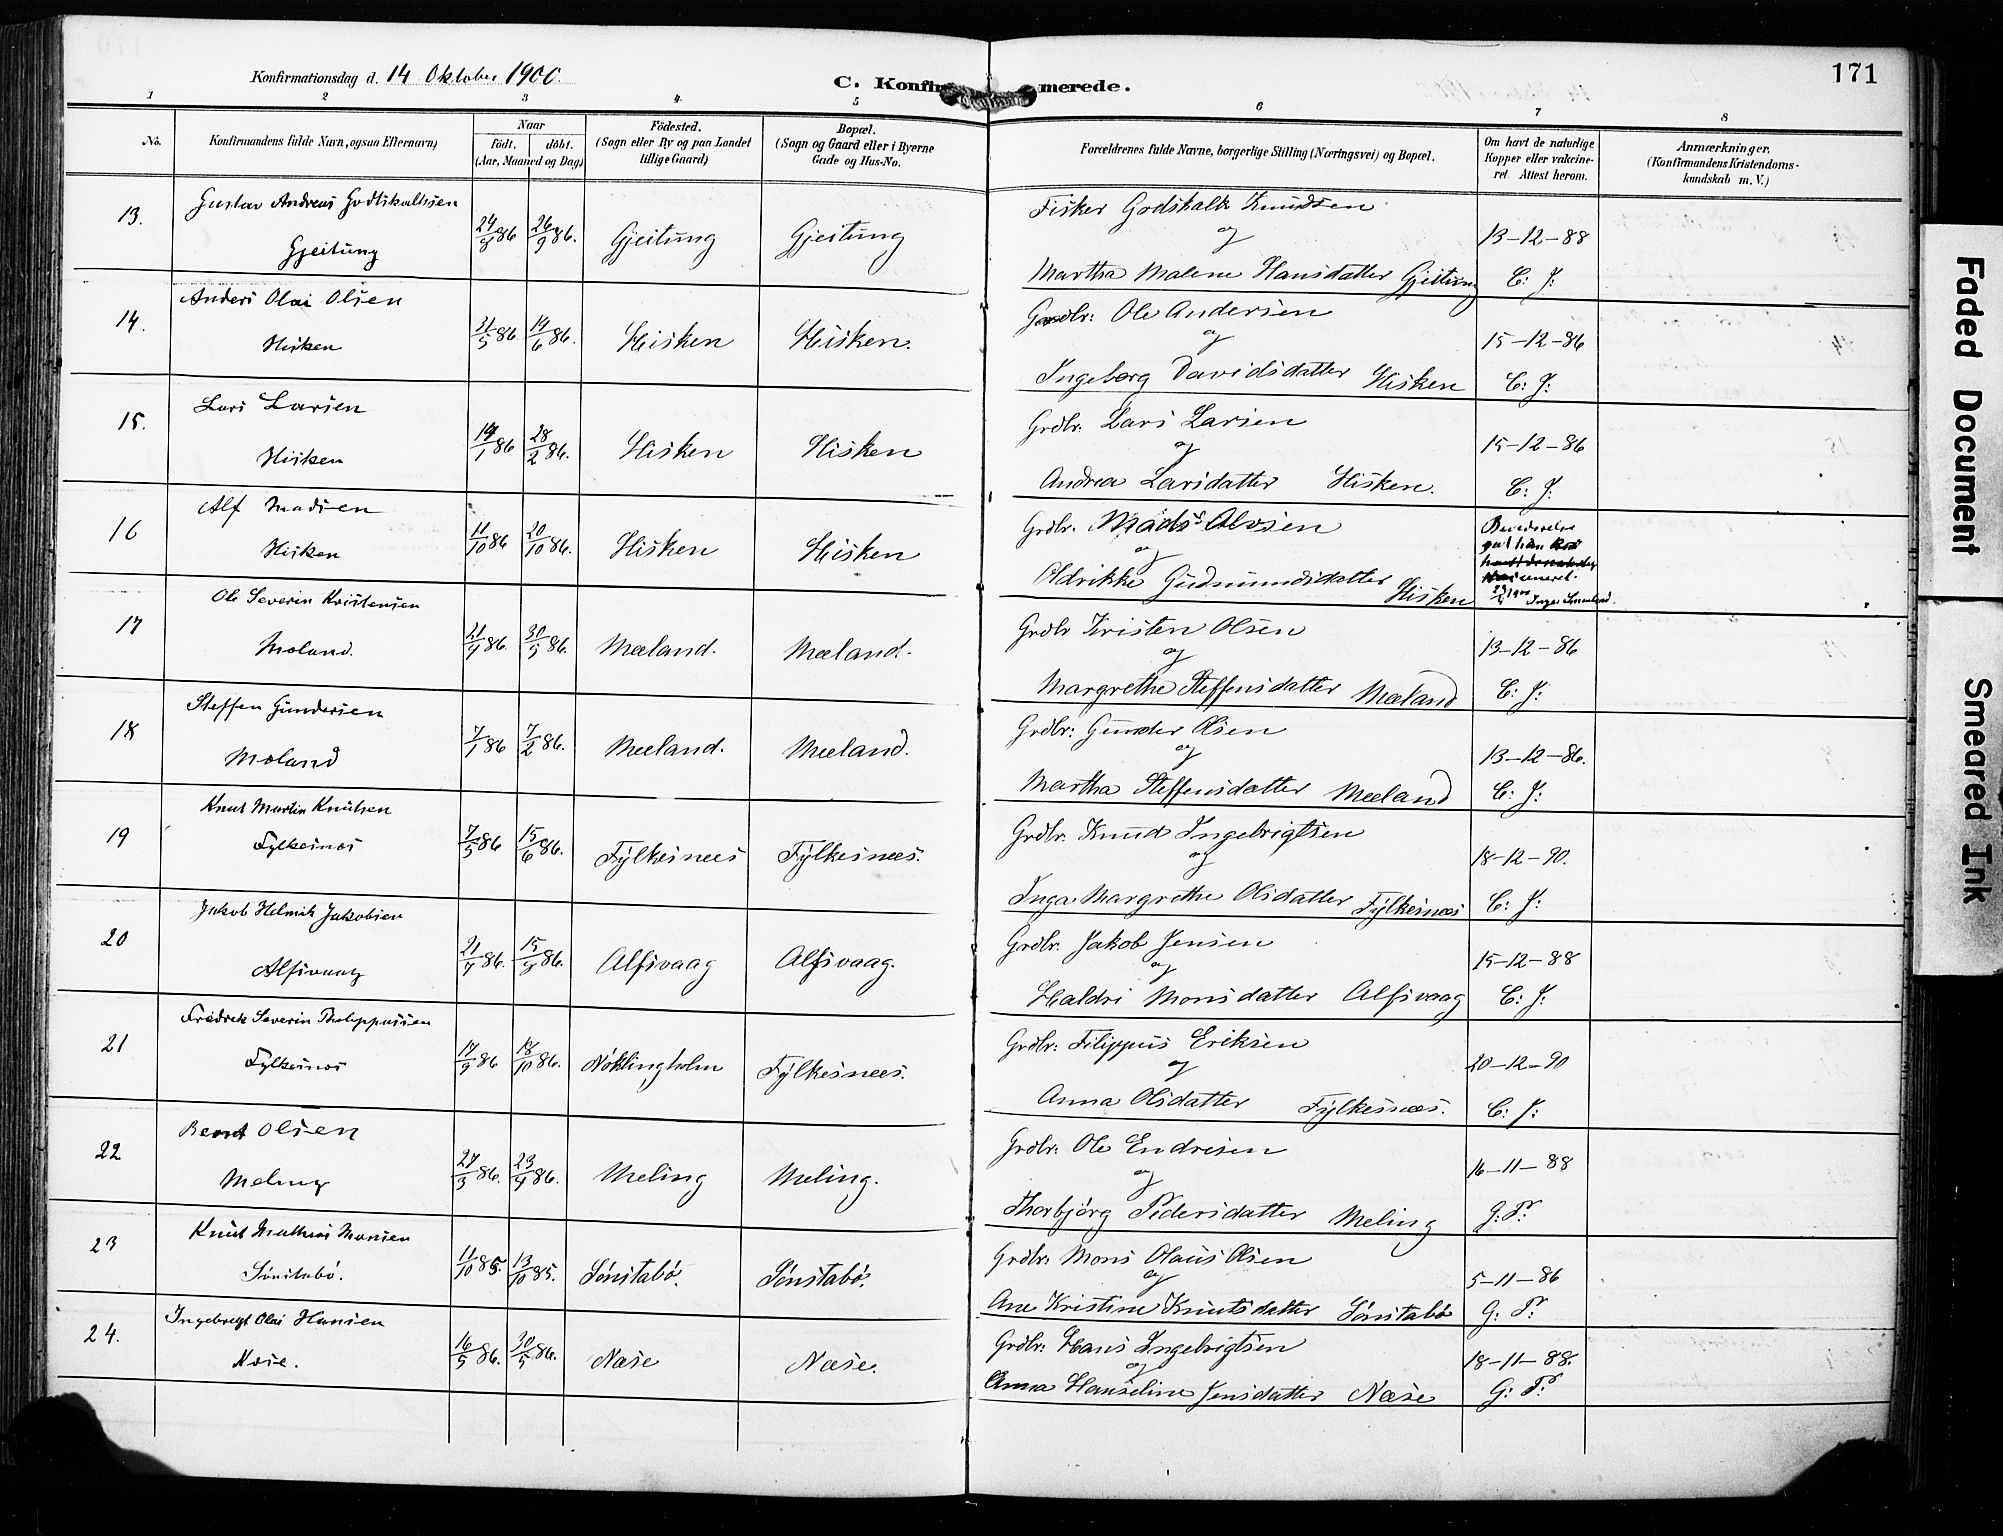 171
Konfirmationsdag d. 14 Oktober 1900.
C. Konfir merede.
1 2 3 4. 5 6 7 8
No.
Konfirmandens fulde Navn, ogsaa Efternavn)
Naar
födt. döbt.
(Aar, Maaned og Dag)
Födested.
(Sogn eller By og paa Landet
tillige Gaard)
Bopæl.
(Sogn og Gaard eller i Byerne
Gade og Hus-No.
Forældrenes fulde Navne, borgerlige Stilling (Næringsvei) og Bopæl.
Om havt de naturlige
Kopper eller vakcine-
ret. Attest herom.
Anmærkninger.
(Konfirmandens Kristendoms-
kundskab m. V.)
13. Gustav Andreas Godtskalksen
Gjeitung
24/8 86 26/9 86. Gjeitung Gjeitung
Fisker Godskalk Knudsen
og
Martha Malene Hansdatter Gjeitung
13-12-88
C: J:
14. Anders Olai Olsen
Hisken
21/5 86. 14/6 86. Hisken Hisken.
Gaardbr: Ole Andersen
og
Ingeborg Davidsdatter Hisken
15-12-86
C: J:
15. Lars Larsen
Hisken
14/1 86 28/2 86. Hisken Hisken
Grdbr. Lars Larsen
og
Andrea Larsdatter Hisken.
15-12-86
C: J:
16 Alf Madsen
Hisken
11/10 86 20/10 86. Hisken Hisken
Grdbr. Mads Alvsen
og
Oldrikke Gudmundsdatter Hisken
17 Ole Severin Kristensen
Moland.
21/4 86. 30/5 86. Mæland. Mæland.
Grdbr Kristen Olsen
og
Margrethe Steffensdatter Mæland
13-12-86
C: J:
18 Steffen Gundersen
Moland
7/1 86 7/2 86. Mæland. Mæland.
Grdbr: Gunder Olsen
og
Martha Steffensdatter Mæland
13-12-86.
C: J:
19 Knut Martin Knutsen
Fylkesnes
7/5 86 15/6 86. Fylkesnees Fylkesnæs.
Grdbr. Knud Ingebrigtsen
og
Inga Margrethe Olsdatter Fylkesnæs
18-12-90.
C: J:
20 Jakob Helmik Jakobsen
Alfsvaag
21/7 86. Alfsvaag Alfsvaag.
Grdbr: Jakob Jensen
og
Haldri Monsdatter Alfsvaag
15-12-88
C: J:
21 Fredrek Severin Pholippussen
Fylkesnes
17/9 86 18/10 86. Nöklingholm Fylkesnees.
Grdbr: Filippus Eriksen
og
Anna Olsdatter Fylkesnæs.
20-12-90
C: J:
22 Bernt Olsen
Meling
27/3 86. 23/4 86. Meling Meling.
Grdbr: Ole Endresen
og
Thorbjörg Pedersdatter Meling
16-11-88
G: P:
23 Knut Mathias Monsen
Sönstabö.
11/10 85. 13/10 85. Sönstabö. Sönstabö.
Grdbr: Mons Olaus Olsen
og
Ane Kristine Knutsdatter Sönstabö
5-11-86
G: P:
24. Ingebregt Olai Hansen
Næse.
16/5 86. 30/5 86. Næse Næse.
Grdbr: Hans Ingebrigtsen
og
Anna Hanseline Jensdatter Næse
18-11-88.
G: P:
Faded Document
Smeared Ink